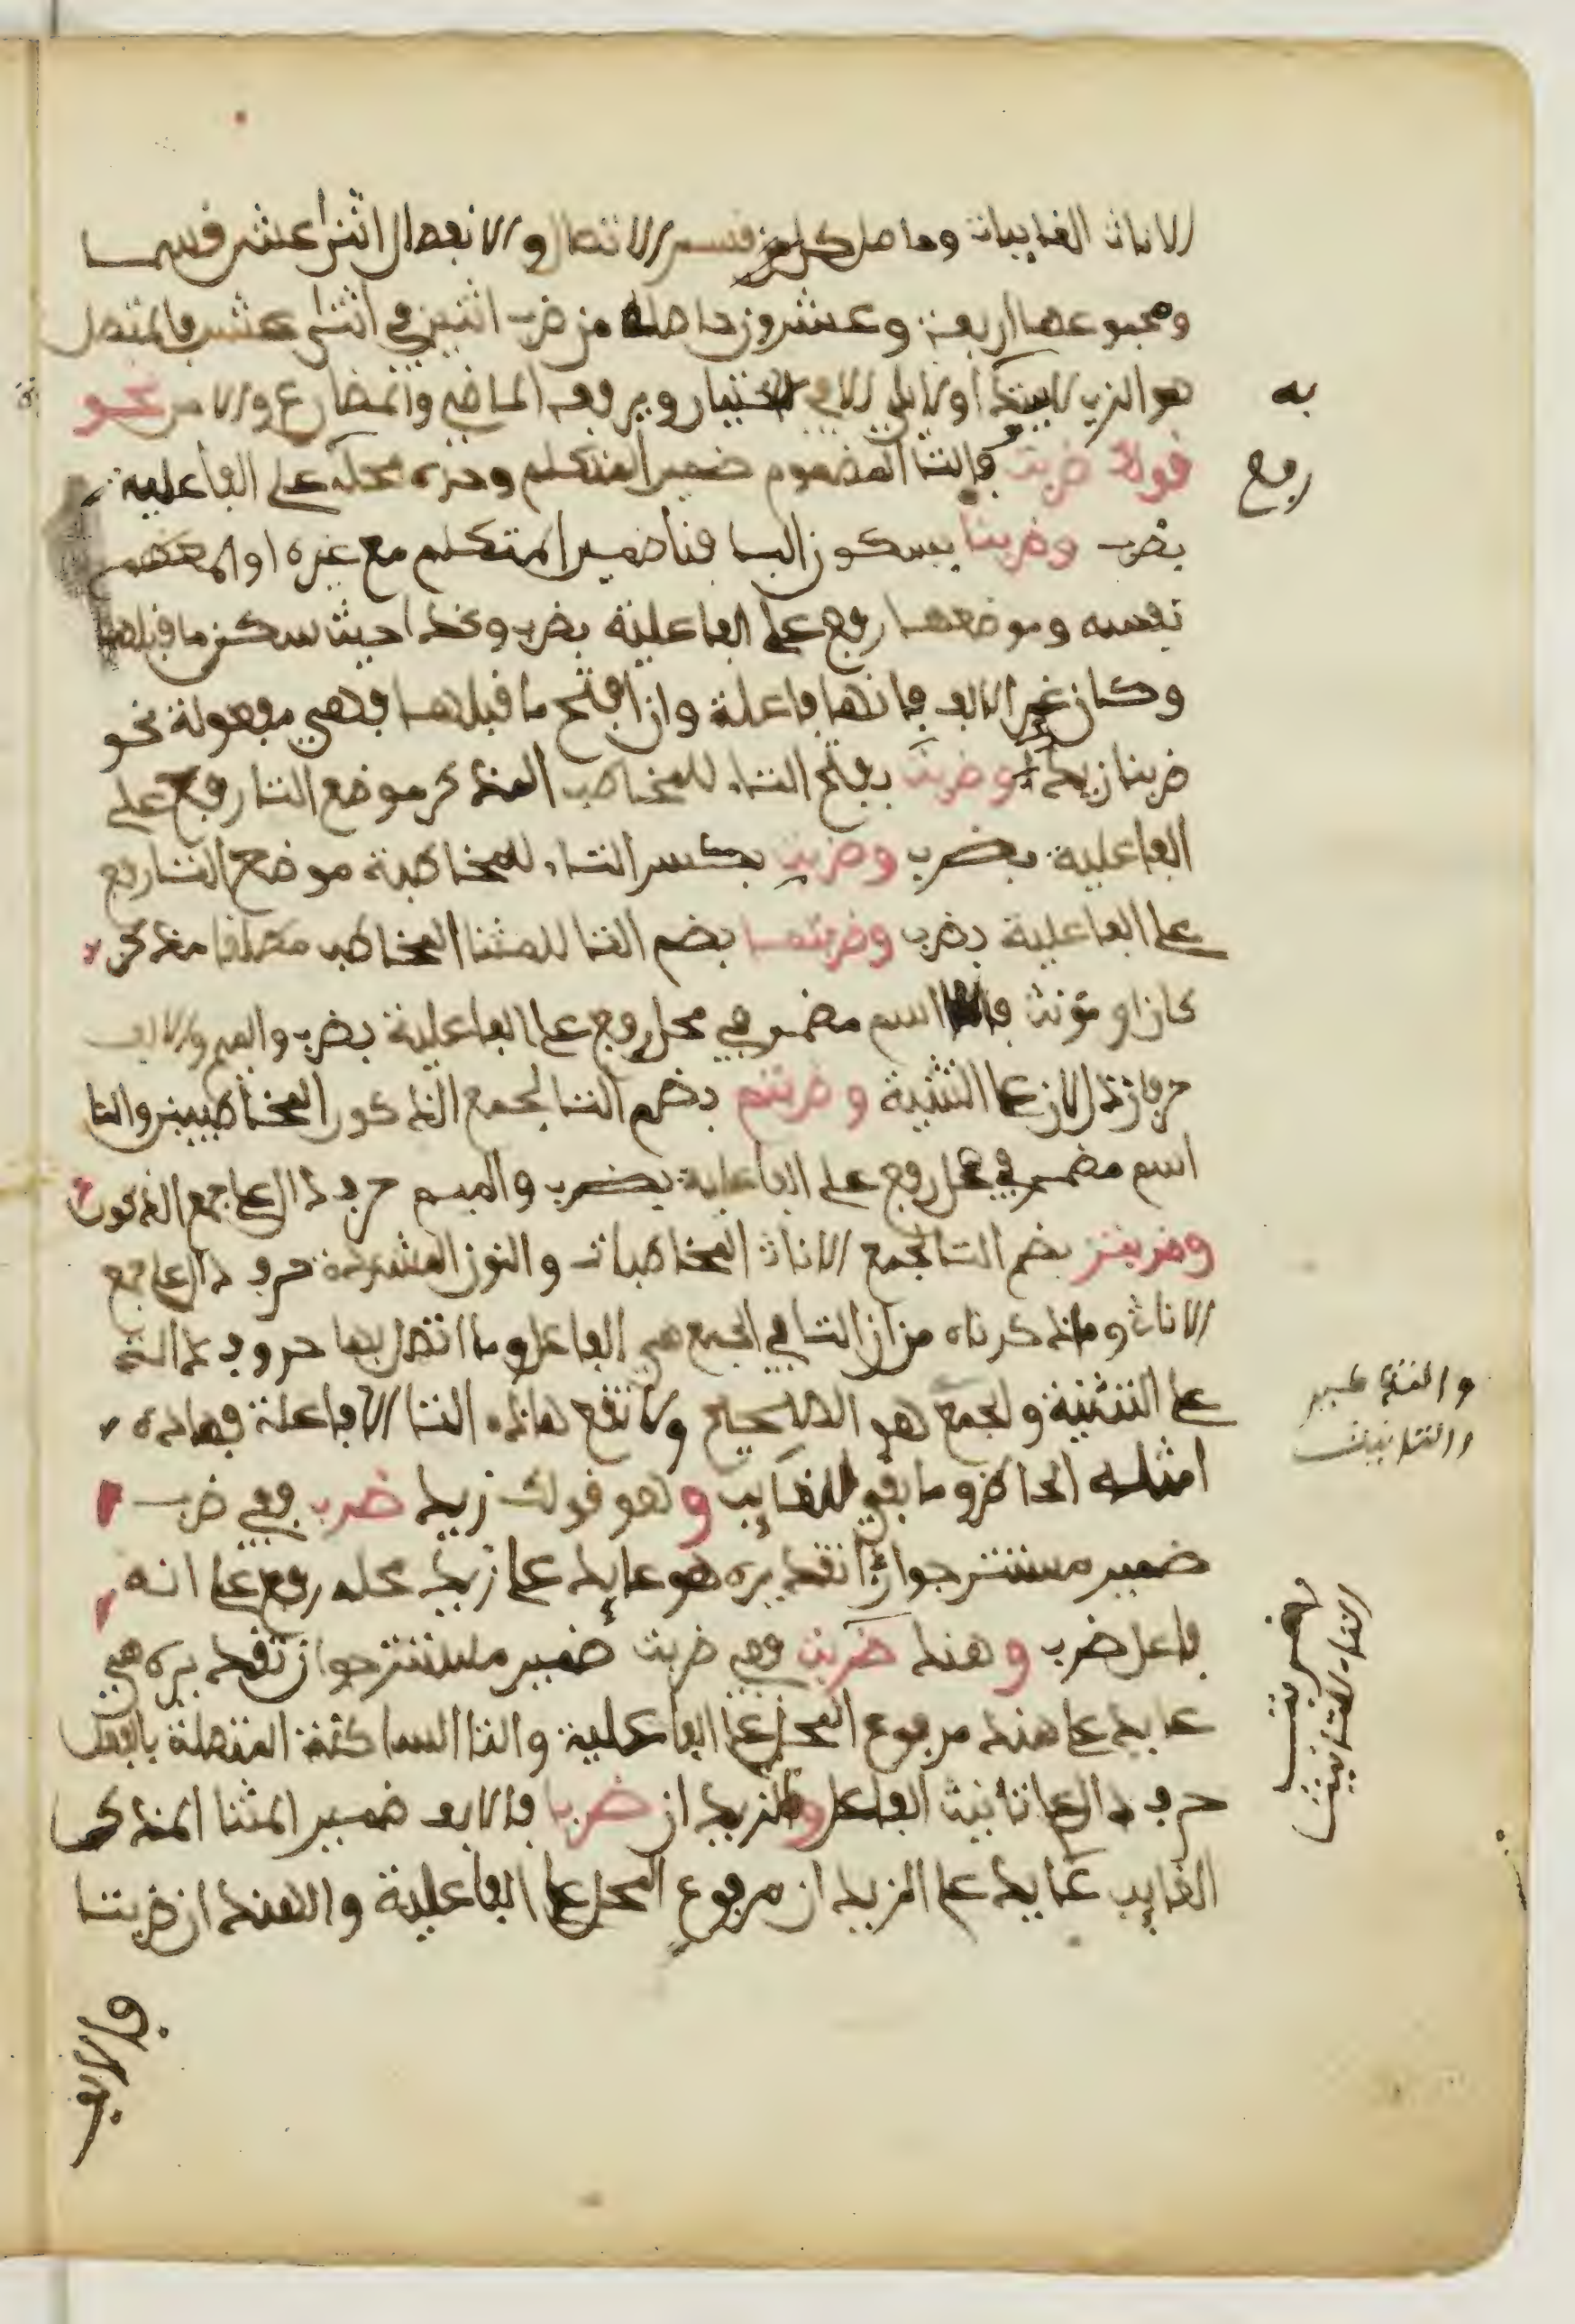 الاناث الغايبات وحاصل كل من قسمي الاتصال والانفصال اثنا عشر قسما
ومجموعها اربعة وعشرون حاصلة من ضرب اثنين في اثنى عشر فالمتصل
هو الذي لا يبتدا به ولا يلي الا في الاختيار ويرفعه الماضي والمضارع والامر نحو
قولك ضربت فالتا المضموم ضمير المتكلم وحده محله رفع على الفاعلية
بضرب وضربنا بسكون البا فنا ضمير المتكلم مع غيره او المعظم
نفسه وموضعها رفع على الفاعلية بضرب وكذا حيث سكن ما قبلها
وكان غير الالف فانها فاعلة وان افتح ما قبلها فهي مفعولة نحو
ضربنا زيد وضربت بفتح التاء للمخاطب المذكر موضع التا رفع على
الفاعلية بضرب وضربت بكسر التاء للمخاطبة موضع التا رفع
على الفاعلية بضرب وضربتما بضم التا للمثنا المخاطب مطلقا مذكر
كان او مؤنث فالتا اسم مضمر في محل رفع على الفاعلية بضرب والميم والالف
حرفان دالان على التثنية وضربتم بضم التا لجمع الذكور المخاطبين والتا
اسم مضمر في محل رفع على الفاعلية بضرب والميم حرف دال على جمع الذكور
وضربتن بضم التا لجمع الاناث المخاطبات والنون المشددة حرف دال على جمع
الاناث وما ذكرناه من ان التا في الجميع هي الفاعل وما اتصل بها حروف دالة
على التثنية والجمع هو الصحيح ولا تقع هاذه التا الا فاعلة فهاذه
امثلة الحاضر وما بقي للغايب وهو قولك زيد ضرب ففي ضرب
ضمير مستتر جوازا تقديره هو عايد على زيد محله رفع على انه
فاعل ضرب وهند ضربت ففي ضربت ضمير مستتر جوازا تقديره هي
عايد على هند مرفوع المحل على الفاعلية والتا الساكنة المتصلة بالفعل
حرف دال على تانيث الفاعل والزيدان ضربا فالالف ضمير المثنا المذكر
الغايب عايد على الزيدان مرفوع المحل على الفاعلية والهندان ضربتا
والتذكير
والتانيث
وضربتا
التاء للتانيث
فالالف